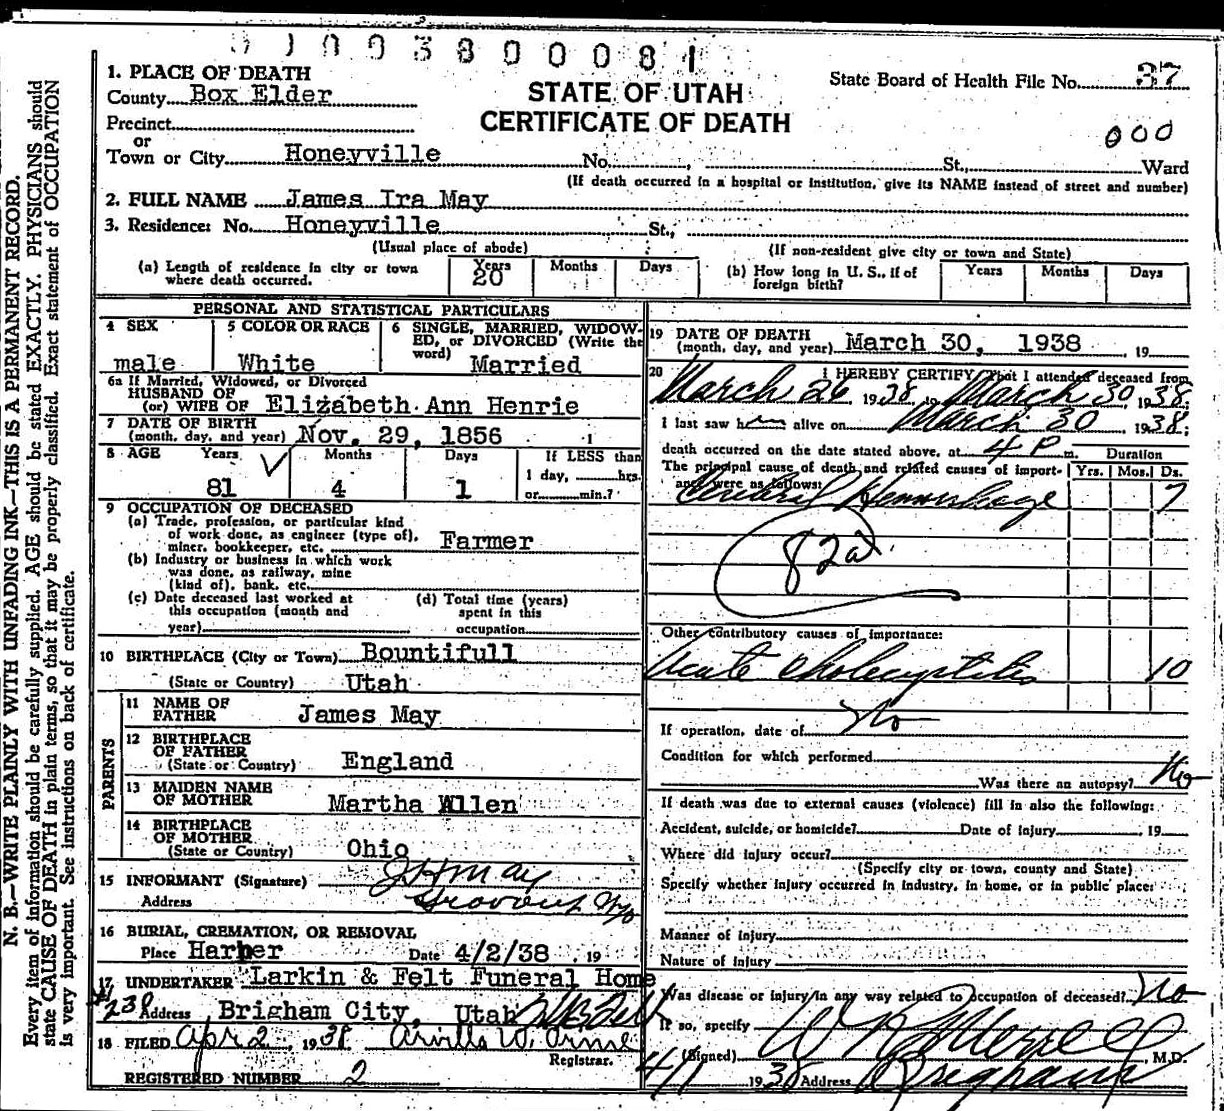 0 1 0 0 3 8 0 0 0 8 1
1. PLACE OF DEATH
County Box Elder
STATE OF UTAH
CERTIFICATE OF DEATH
State Board of Health File No. 37
Precinct
or
Town or City Honeyville No. , St., Ward
000
(If death occurred in a hospital or institution, give its NAME instead of street and number)
2. FULL NAME James Ira May
3. Residence: No. Honeyville St.,
(Usual place of abode) (If non-resident give city or town and State)
(a) Length of residence in city or town where death occurred. Years 20 Months Days
(b) How long in U. S., if of foreign birth? Years Months Days
PERSONAL AND STATISTICAL PARTICULARS
4 SEX male
5 COLOR OR RACE White
6 SINGLE, MARRIED, WIDOWED, or DIVORCED (Write the word) Married
6a If Married, Widowed, or Divorced
HUSBAND OF
(or) WIFE OF Elizabeth Ann Henrie
7 DATE OF BIRTH
(month, day, and year) Nov. 29, 1856
8 AGE Years 81 Months 4 Days 1
If LESS than
1 day, hrs.
or min.?
9 OCCUPATION OF DECEASED
(a) Trade, profession, or particular kind
of work done, as engineer (type of),
miner, bookkeeper, etc. Farmer
(b) Industry or business in which work
was done, as railway, mine
(kind of), bank, etc.
(c) Date deceased last worked at
this occupation (month and
year)
(d) Total time (years)
spent in this
occupation
10 BIRTHPLACE (City or Town) Bountifull
(State or Country) Utah
PARENTS
11 NAME OF
FATHER James May
12 BIRTHPLACE
OF FATHER
(State or Country) England
13 MAIDEN NAME
OF MOTHER Martha Wllen
14 BIRTHPLACE
OF MOTHER
(State or Country) Ohio
15 INFORMANT (Signature) J H May
Address Wyo
16 BURIAL, CREMATION, OR REMOVAL
Place Harper Date 4/2/38 , 19
17 UNDERTAKER Larkin & Felt Funeral Home
#238 Address Brigham City, Utah
18 FILED Apr 2 , 1938 Arvilla W. Orme
Registrar.
REGISTERED NUMBER 2
19 DATE OF DEATH
(month, day, and year) March 30, 1938 , 19
20 I HEREBY CERTIFY, That I attended deceased from
March 26 1938, to March 30, 1938
I last saw him alive on March 30 1938;
death occurred on the date stated above, at 4 P m. Duration
The principal cause of death and related causes of importance were as follows: Yrs. Mos. Ds.
Cerebral Hemorrhage 7
82a
Other contributory causes of importance:
Acute Cholecystitis 10
If operation, date of No
Condition for which performed
Was there an autopsy? No
If death was due to external causes (violence) fill in also the following:
Accident, suicide, or homicide? Date of injury , 19
Where did injury occur?
(Specify city or town, county and State)
Specify whether injury occurred in industry, in home, or in public place:
Manner of injury
Nature of injury
Was disease or injury in any way related to occupation of deceased? No
If so, specify
(Signed) W R Merrell , M.D.
4/1 1938 Address Brigham
N. B.—WRITE PLAINLY WITH UNFADING INK—THIS IS A PERMANENT RECORD.
Every item of information should be carefully supplied. AGE should be stated EXACTLY. PHYSICIANS should
state CAUSE OF DEATH in plain terms, so that it may be properly classified. Exact statement of OCCUPATION
is very important. See instructions on back of certificate.